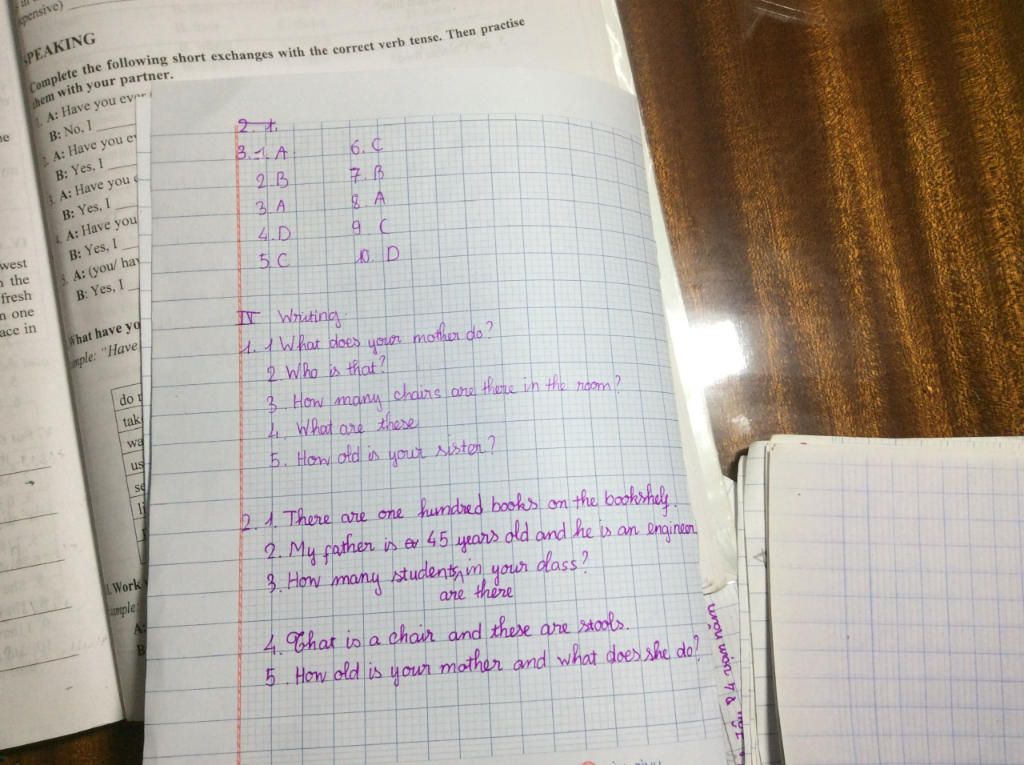 pensive)
SPEAKING
Complete the following short exchanges with the correct verb tense. Then practise
them with your partner.
A: Have you ever
B: No, I
A: Have you ev
B: Yes, I
A: Have you
B: Yes, I
A: Have you
B: Yes, I
A: (you/ hav
B: Yes, I
west
the
fresh
n one
ace in
What have yo
mple: "Have
do
tak
wa
us
se
li
Work
ample:
A:
B
2. 1.
3. 1. A 6. C
2. B 7. B
3. A 8. A
4. D 9 C
5. C 10. D
IV Writing
1. 1 What does your mother do?
2 Who is that?
3. How many chairs are there in the room?
4. What are these
5. How old is your sister?
2. 1. There are one hundred books on the bookshelf.
2. My father is 45 years old and he is an engineer
3. How many students in your class?
are there
4. That is a chair and these are stools.
5. How old is your mother and what does she do?